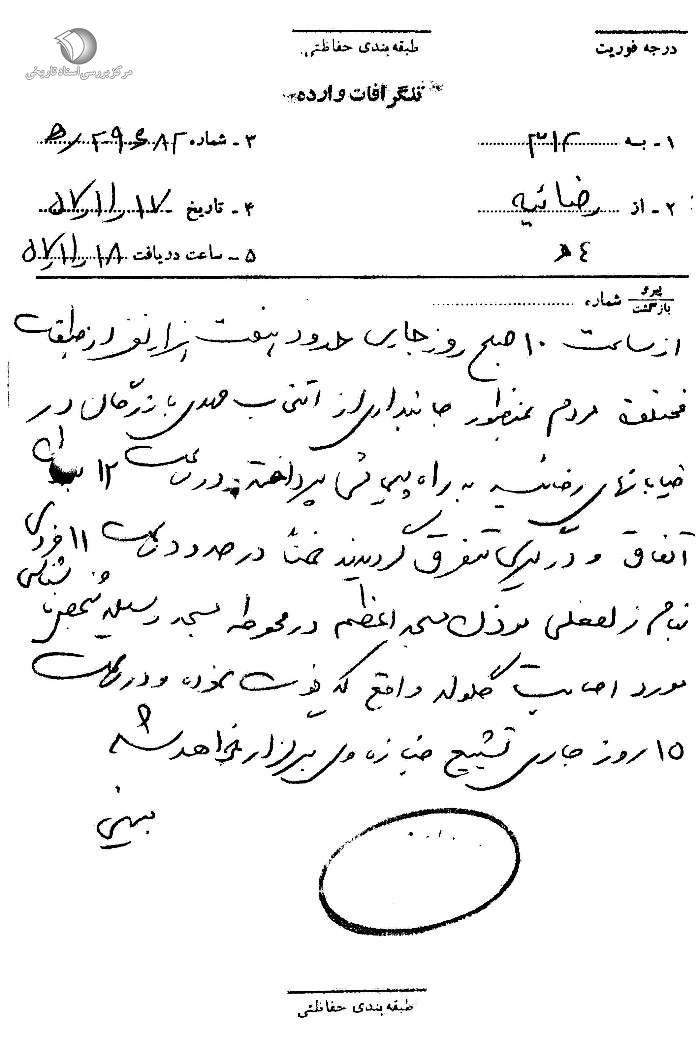 مرکز بررسی اسناد تاریخی
درجه فوریت
طبقه بندی حفاظتی
تلگرافات وارده
۱ - به ۳۱۲
۳ - شماره ۲۹۶۸۲ ره
۲ - از رضائیه
۴ - تاریخ ۵۷/۱۱/۱۷
۴ ه
۵ - ساعت دریافت ۵۷/۱۱/۱۸
پیرو
بازگشت شماره
از ساعت ۱۰ صبح روز جاری حدود هفت هزار نفر از طبقات
مختلف مردم بمنظور جانبداری از انتخاب مهدی بازرگان در
خیابانهای رضائیه به راه پیمائی پرداخته در ساعت ۱۲ بدون
اتفاق و درگیری متفرق گردیدند ضمنا در حدود ساعت ۱۱ فردی
بنام زلفعلی موذن مسجد اعظم در محوطه مسجد وسیله شخص ناشناسی
مورد اصابت گلوله واقع که فوت نموده و در ساعت
۱۵ روز جاری تشییع جنازه وی برگزار خواهد شد
طبقه بندی حفاظتی